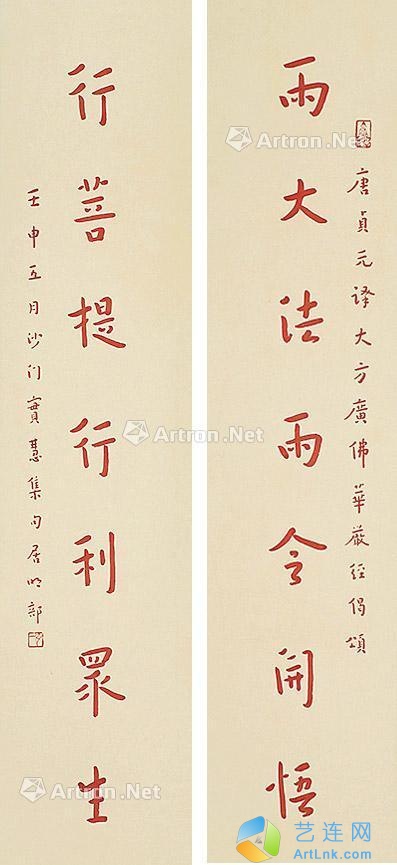 唐貞元译大方廣佛華嚴經偈頌
雨大法雨令開悟
行菩提行利眾生
壬申五月沙门實慧集句居明部
Artron.Net
Artron.Net
Artron.Net
Artron.Net
Artron.Net
Artron.Net
艺连网
ArtLnk.com